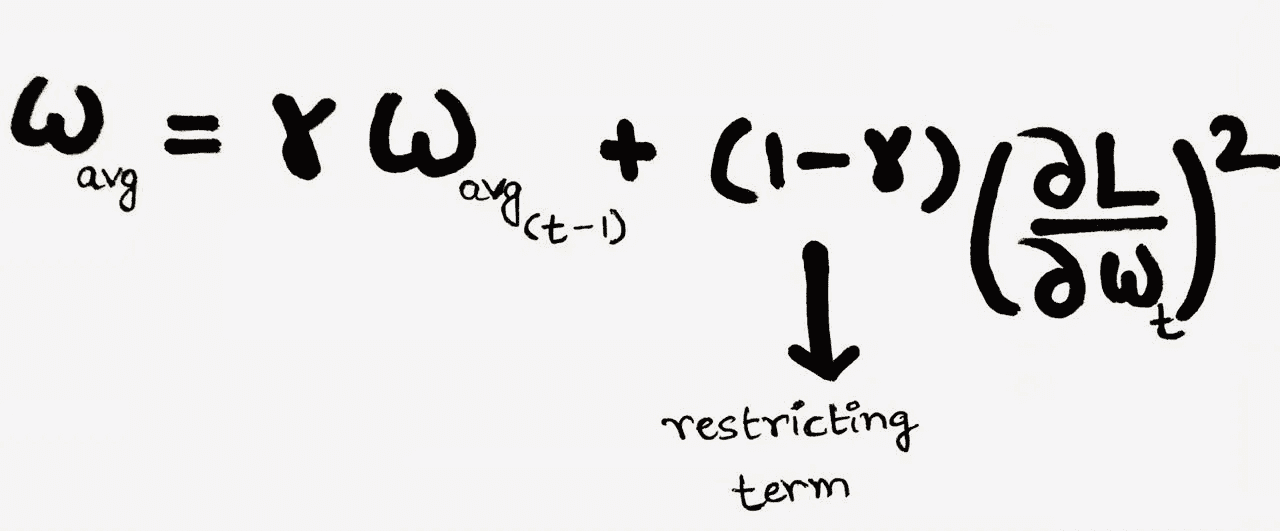 ω_avg = γ ω_avg_(t-1) + (1-γ) (∂L/∂ω_t)^2
restricting
term